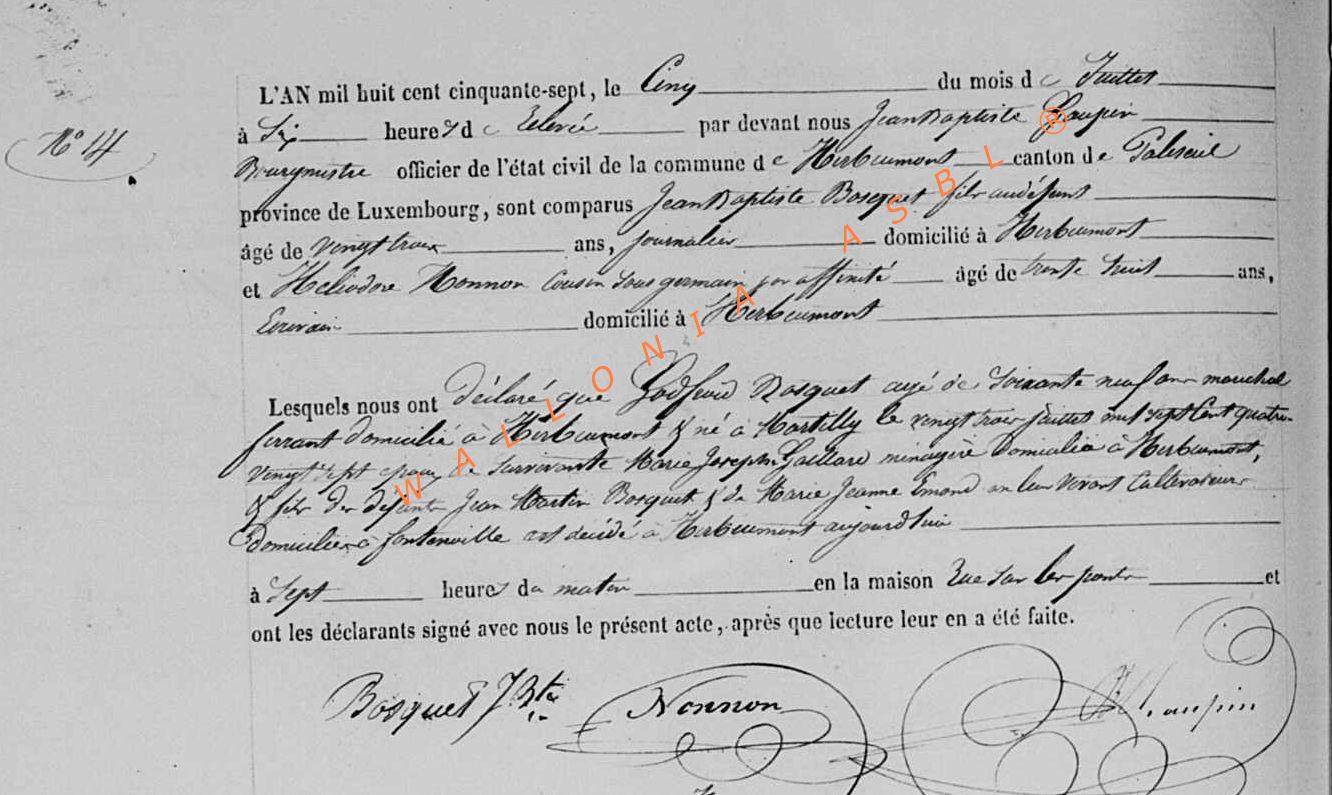 L'AN mil huit cent cinquante-sept, le Cinq du mois de Juillet
N° 14
à Six heures de Relevée par devant nous Jean Baptiste
Bourgmestre officier de l'état civil de la commune de Herbeumont canton de Paliseul
province de Luxembourg, sont comparus Jean Baptiste Bosquet fils au défunt
âgé de vingt trois ans, journalier domicilié à Herbeumont
et Héliodore Nonnon Cousin sous germain par affinité âgé de trente ans,
Ecrivain domicilié à Herbeumont
Lesquels nous ont déclaré que Godfroid Bosquet agé de Soixante neuf ans maréchal
ferrant domicilié à Herbeumont & né à Martilly le vingt trois Juillet mil sept Cent quatre-
vingt sept époux de Survivante Marie Joseph Gaillard ménagère domiciliée à Herbeumont,
& fils des défunts Jean Martin Bosquet & de Marie Jeanne Emond en leur vivant Cultivateurs
domiciliés à fontenoille est décédé à Herbeumont aujourd'hui
à Sept heures du matin en la maison Rue sur les ponts et
ont les déclarants signé avec nous le présent acte, après que lecture leur en a été faite.
Bosquet J Bte Nonnon
WALLONIA ASBL ®